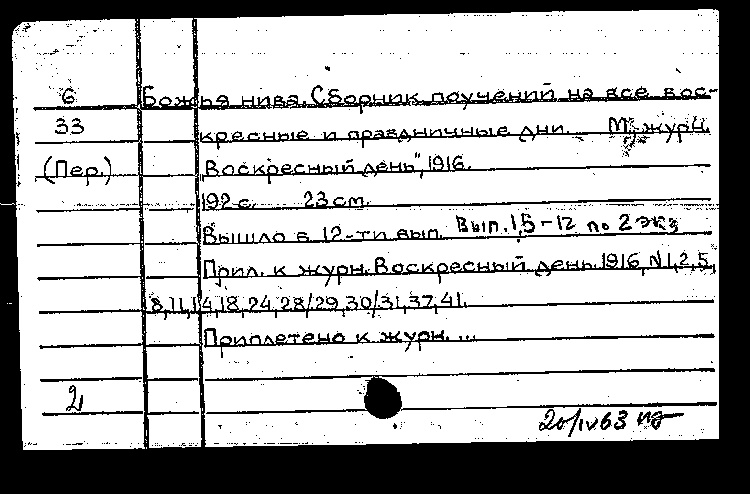 6 Божья нива. Сборник поучений на все вос-
33 кресные и праздничные дни. М., журн.
(Пер.) Воскресный день", 1916.
192 с. 23 см.
Вышло в 12-ти вып. Вып. 1,5-12 по 2 экз
Прил. к журн. Воскресный день. 1916, N1,2,5,
8,11,14,18,24,28/29,30/31,37,41.
Приплетено к журн. ...
2
20/IV 63